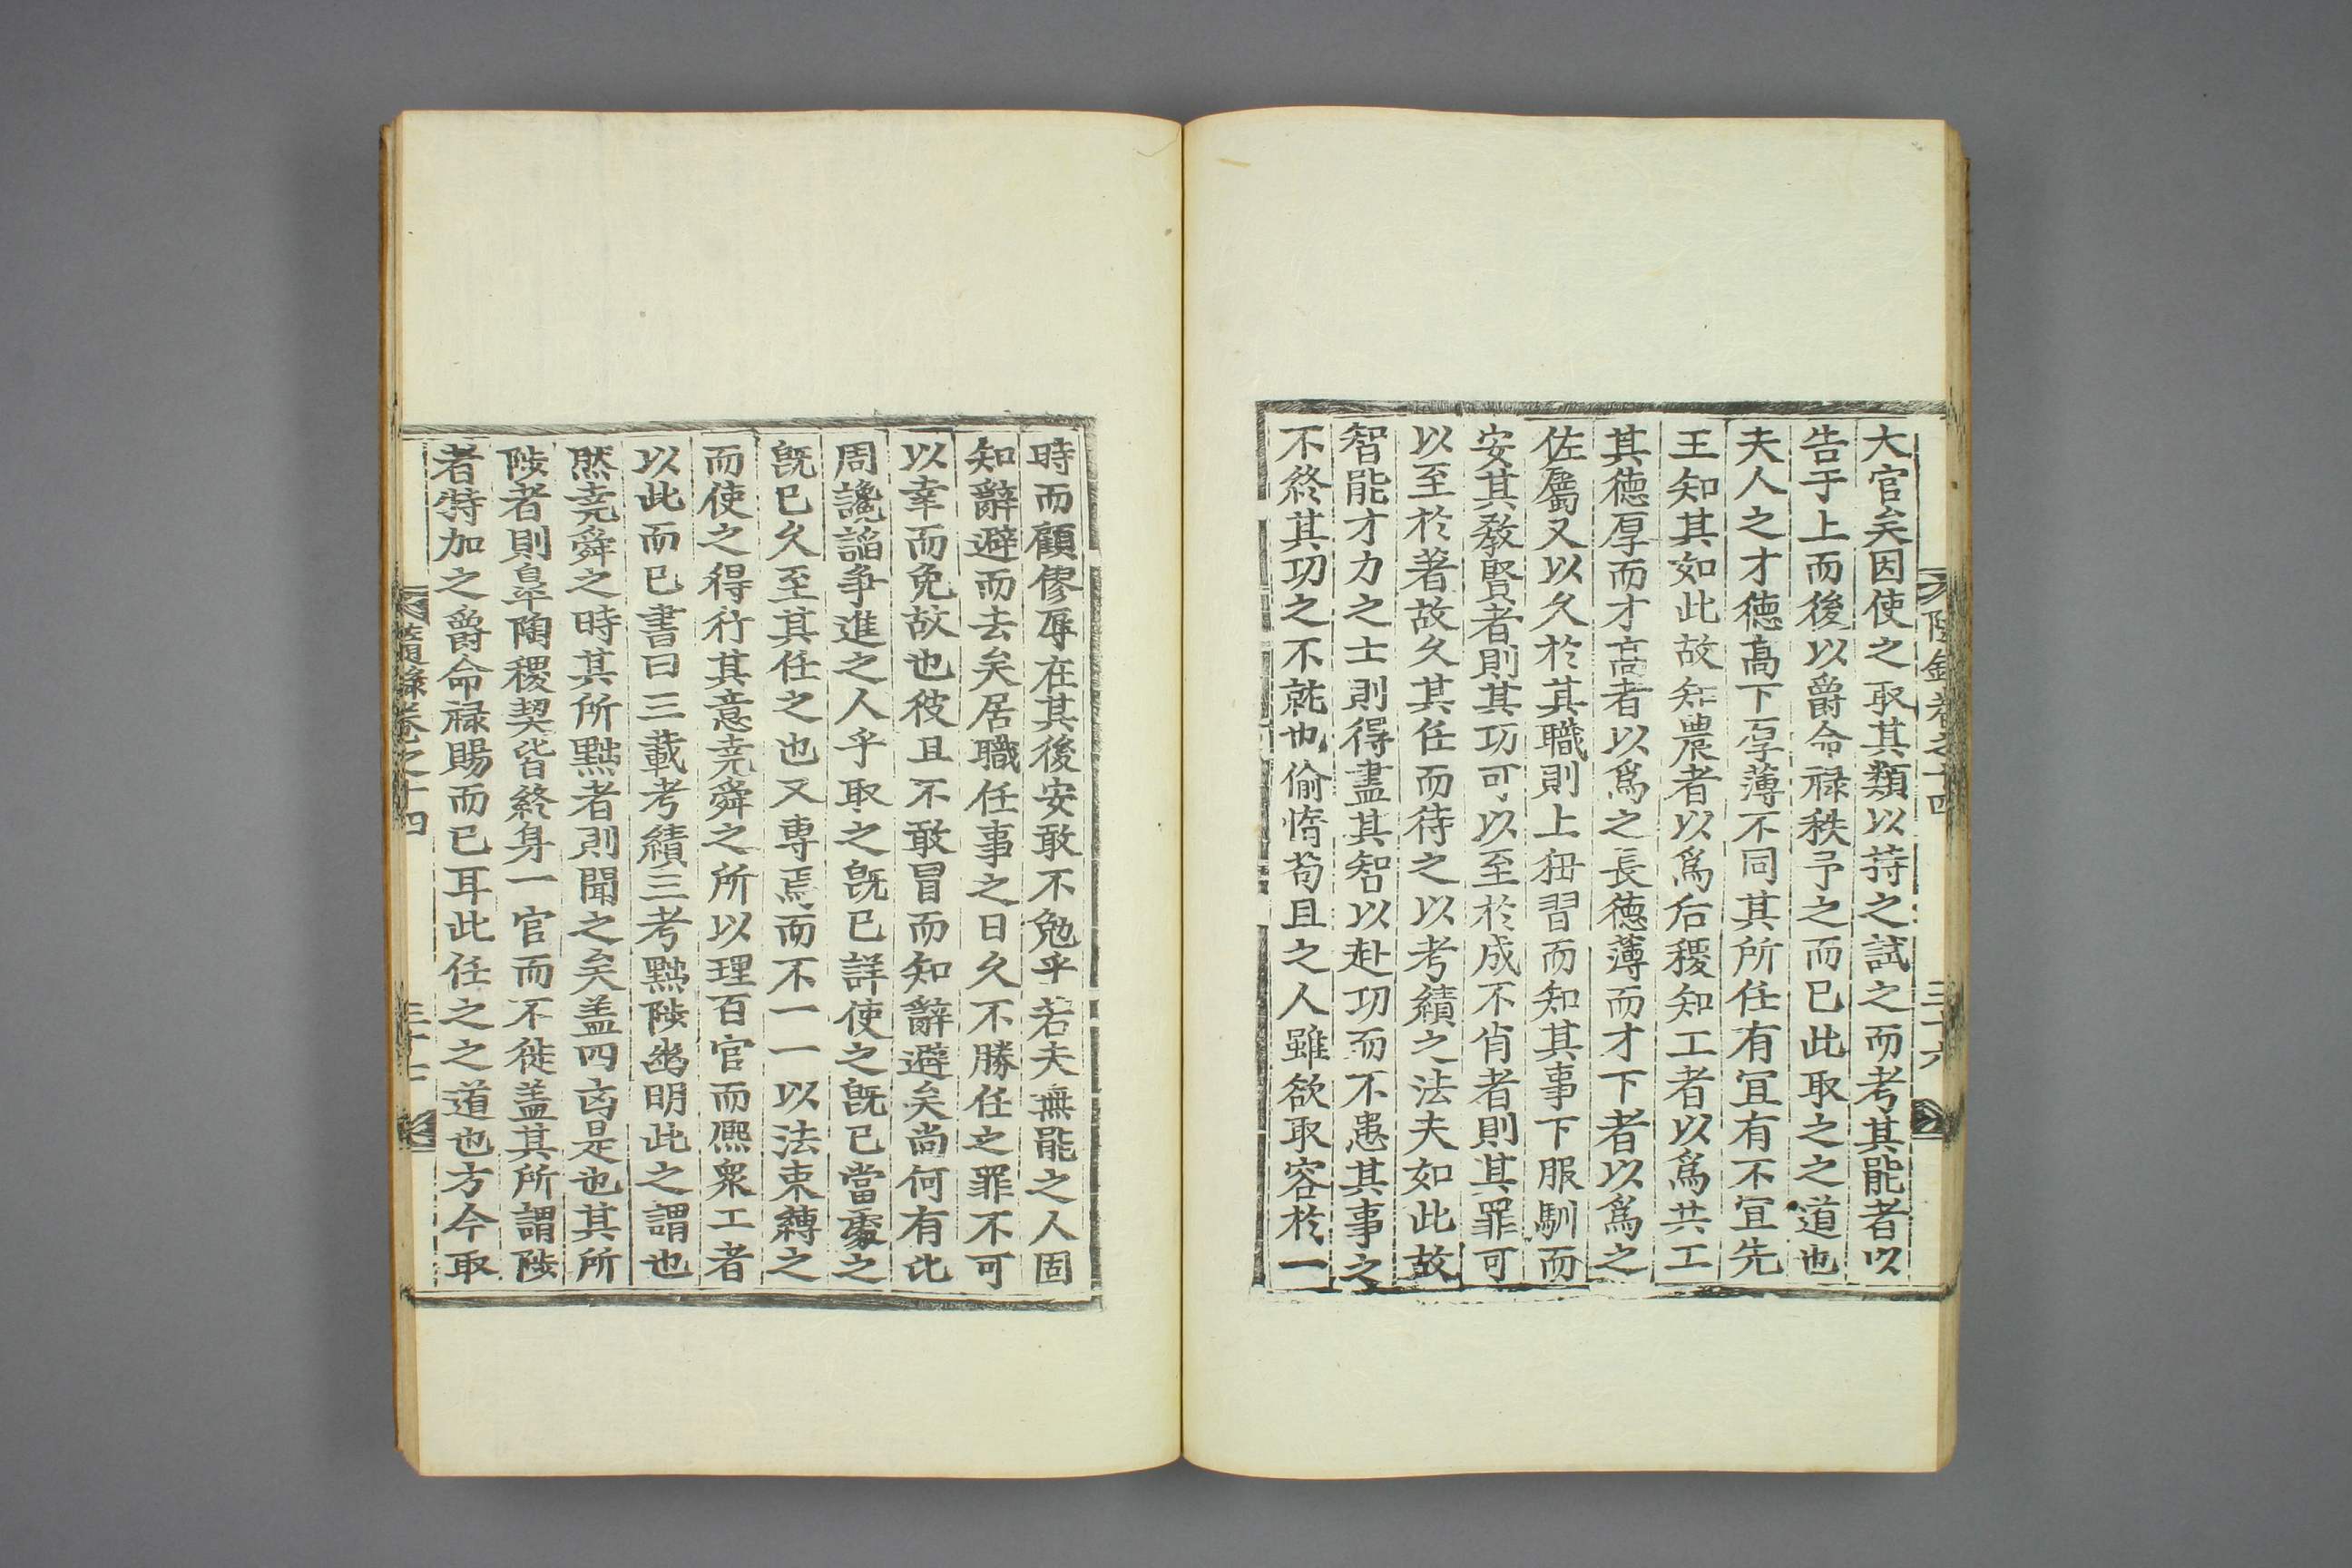 隨錄卷之十四 三十六
大官矣因使之取其類以持之試之而考其能者以
告于上而後以爵命祿秩予之而已此取之之道也
夫人之才德高下厚薄不同其所任有宜有不宜先
王知其如此故知農者以爲后稷知工者以爲共工
其德厚而才高者以爲之長德薄而才下者以爲之
佐屬又以久於其職則上狃習而知其事下服馴而
安其敎賢者則其功可以至於成不肖者則其罪可
以至於著故久其任而待之以考績之法夫如此故
智能才力之士則得盡其智以赴功而不患其事之
不終其功之不就也偷惰苟且之人雖欲取容於一
時而顧僇辱在其後安敢不勉乎若夫無能之人固
知辭避而去矣居職任事之日久不勝任之罪不可
以幸而免故也彼且不敢冒而知辭避矣尚何有比
周讒諂爭進之人乎取之旣已詳使之旣已當處之
旣已久至其任之也又專焉而不一一以法束縛之
而使之得行其意堯舜之所以理百官而熈衆工者
以此而已書曰三載考績三考黜陟幽明此之謂也
然堯舜之時其所黜者則聞之矣盖四凶是也其所
陟者則皐陶稷契皆終身一官而不徙盖其所謂陟
者特加之爵命祿賜而已耳此任之之道也方今取
隨錄卷之十四 三十七